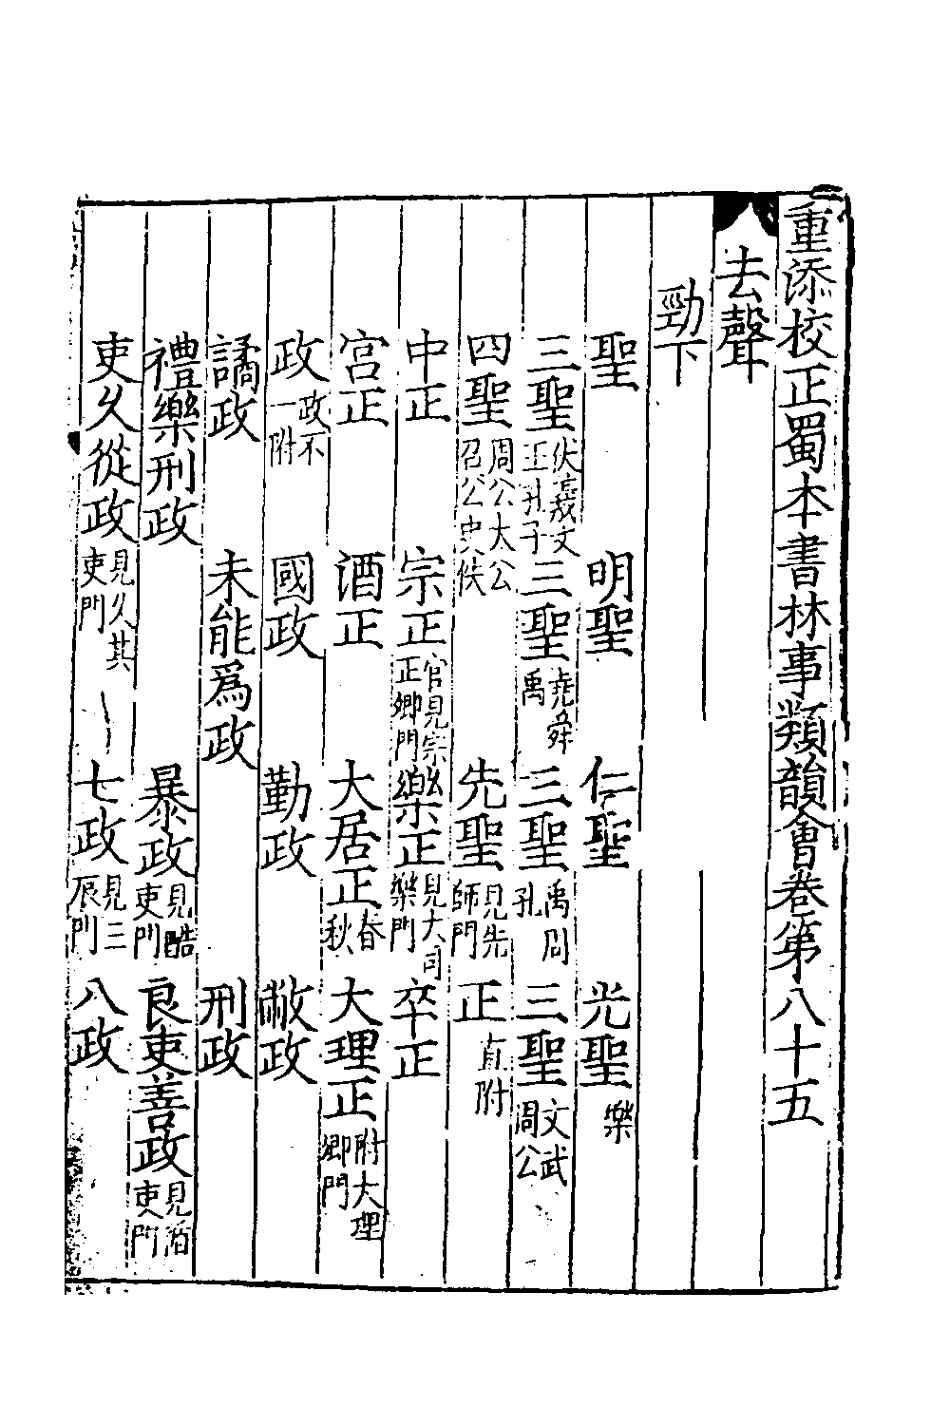 重添校正蜀本書林事類韻會卷第八十五
去聲
勁下
聖 明聖 仁聖 光聖樂
三聖伏羲文王孔子 三聖堯舜禹 三聖禹周孔 三聖文武周公
四聖周公太公召公史佚 先聖見先師門 正直附
中正 宗正官見宗正卿門 樂正見大司樂門 卒正
宮正 酒正 大居正春秋 大理正附大理卿門
政政不一附 國政 勤政 敝政
譎政 未能爲政 刑政
禮樂刑政 暴政見酷吏門 良吏善政見循吏門
吏久從政見久其吏門 七政見三辰門 八政